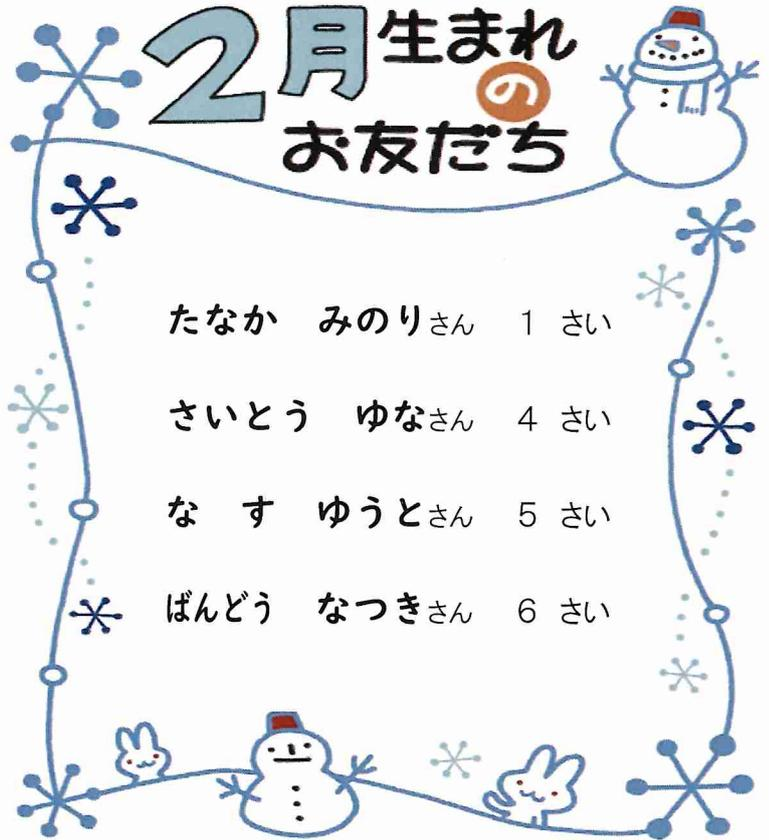 2月生まれ
の
お友だち
たなか　みのりさん　1　さい
さいとう　ゆなさん　4　さい
な　す　ゆうとさん　5　さい
ばんどう　なつきさん　6　さい